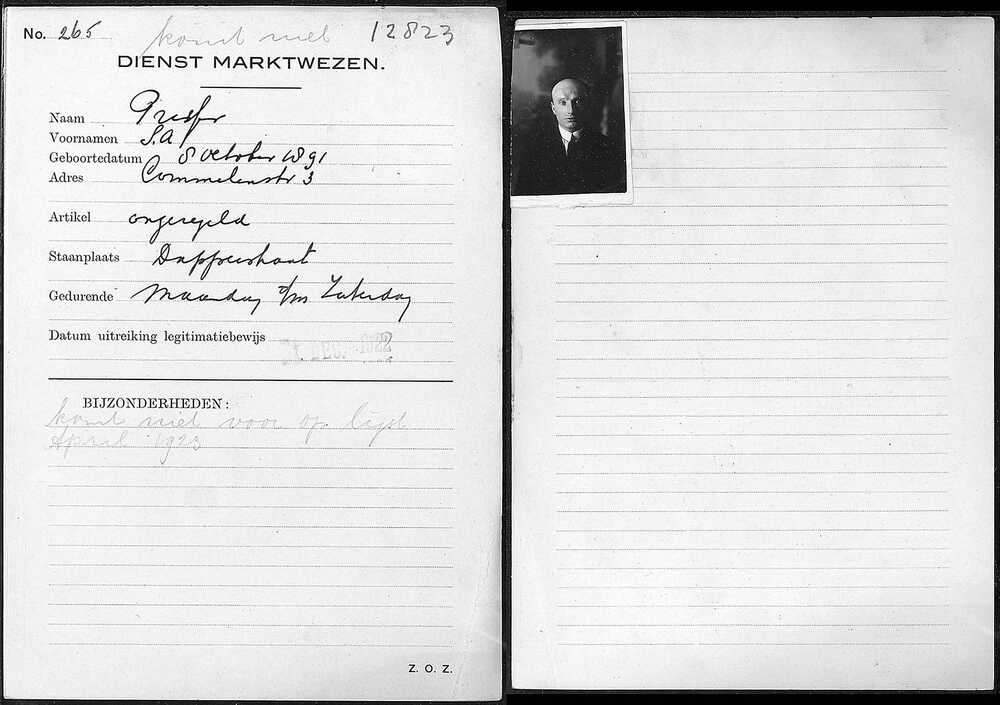 No. 265 komt niet 12823
DIENST MARKTWEZEN.
Naam Presser
Voornamen S.A.
Geboortedatum 8 october 1891
Adres Commelinstr 3
Artikel ongeregeld
Staanplaats Dapperstraat
Gedurende Maandag t/m Zaterdag
Datum uitreiking legitimatiebewijs
BIJZONDERHEDEN:
komt niet voor op lijst
April 1923
Z. O. Z.